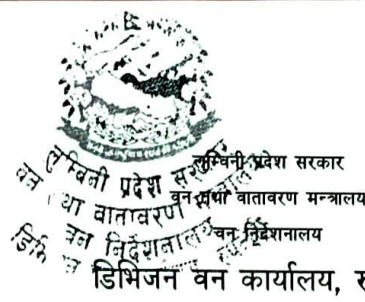 लुम्बिनी प्रदेश सरकार
वन तथा वातावरण मन्त्रालय
वन निर्देशनालय
डिभिजन वन कार्यालय,
लुम्बिनी प्रदेश सरकार
वन तथा वातावरण
वन निर्देशनालय